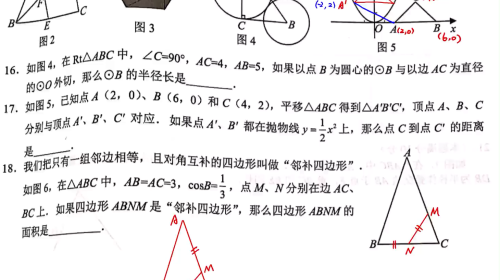 B F E C
图2
图3
C B
图4
(-2,2) A'
O A(2,0) B x
(6,0)
图5
16. 如图4，在Rt△ABC中，∠C=90°，AC=4，AB=5，如果以点B为圆心的⊙B与以边AC为直径
的⊙O外切，那么⊙B的半径长是________.
17. 如图5，已知点A（2，0）、B（6，0）和C（4，2），平移△ABC得到△A'B'C'，顶点A、B、C
分别与顶点A'、B'、C'对应．如果点A'、B'都在抛物线y=1/2x²上，那么点C到点C'的距离
是________.
18. 我们把只有一组邻边相等，且对角互补的四边形叫做“邻补四边形”．
如图6，在△ABC中，AB=AC=3，cosB=1/3，点M、N分别在边AC、
BC上．如果四边形ABNM是“邻补四边形”，那么四边形ABNM的
面积是________.
A
M
B N C
A
M